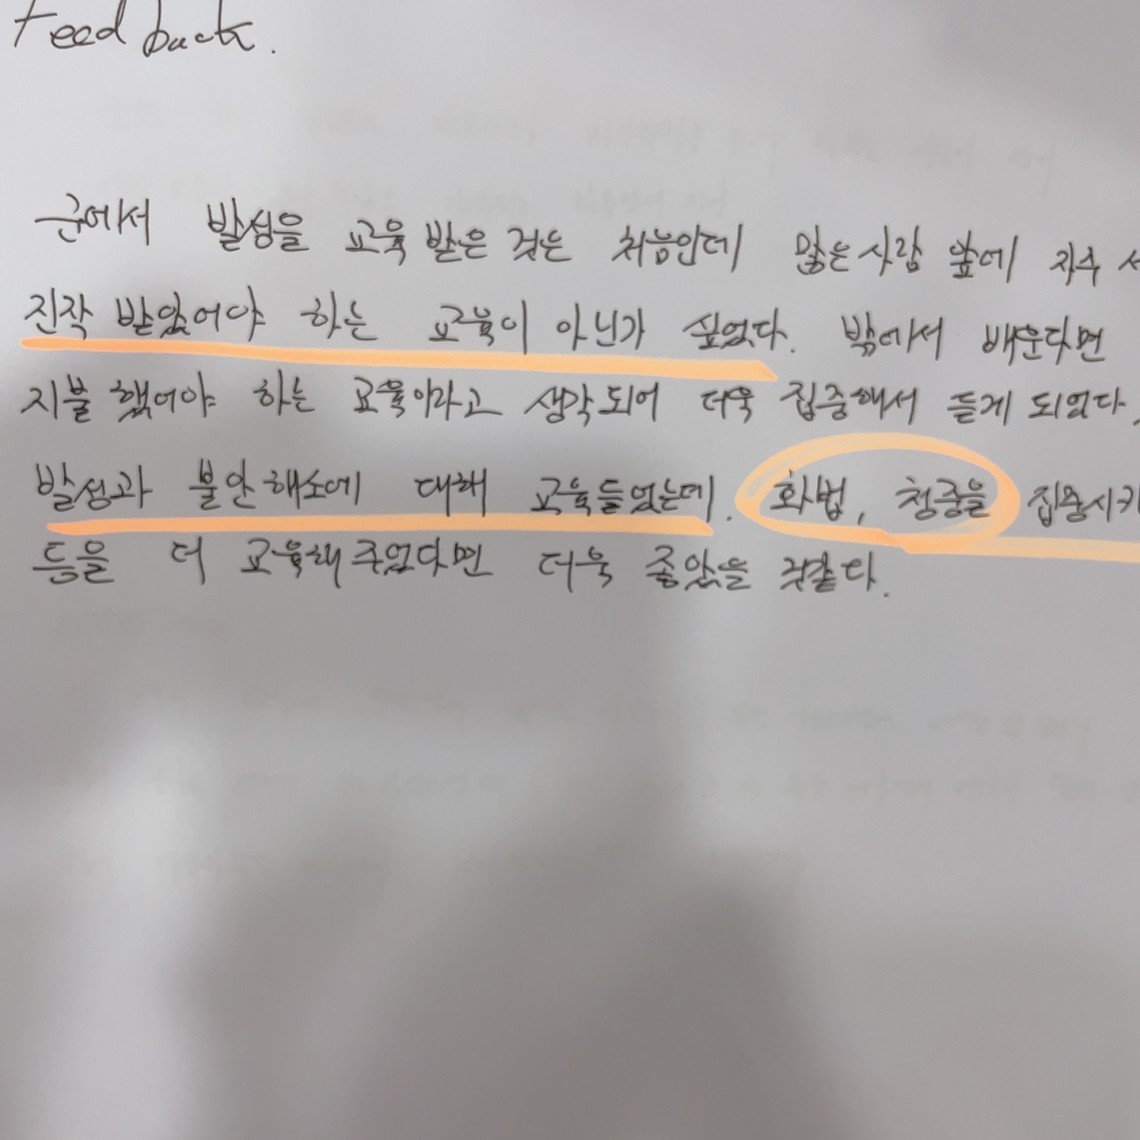 Feed back.
군에서 발성을 교육 받은 것은 처음인데 많은 사람 앞에 자주 서
진작 받았어야 하는 교육이 아닌가 싶었다. 밖에서 배운다면
지불 했어야 하는 교육이라고 생각되어 더욱 집중해서 듣게 되었다.
발성과 불안해소에 대해 교육들었는데. 화법, 청중을 집중시키
등을 더 교육해 주었다면 더욱 좋았을 것같다.